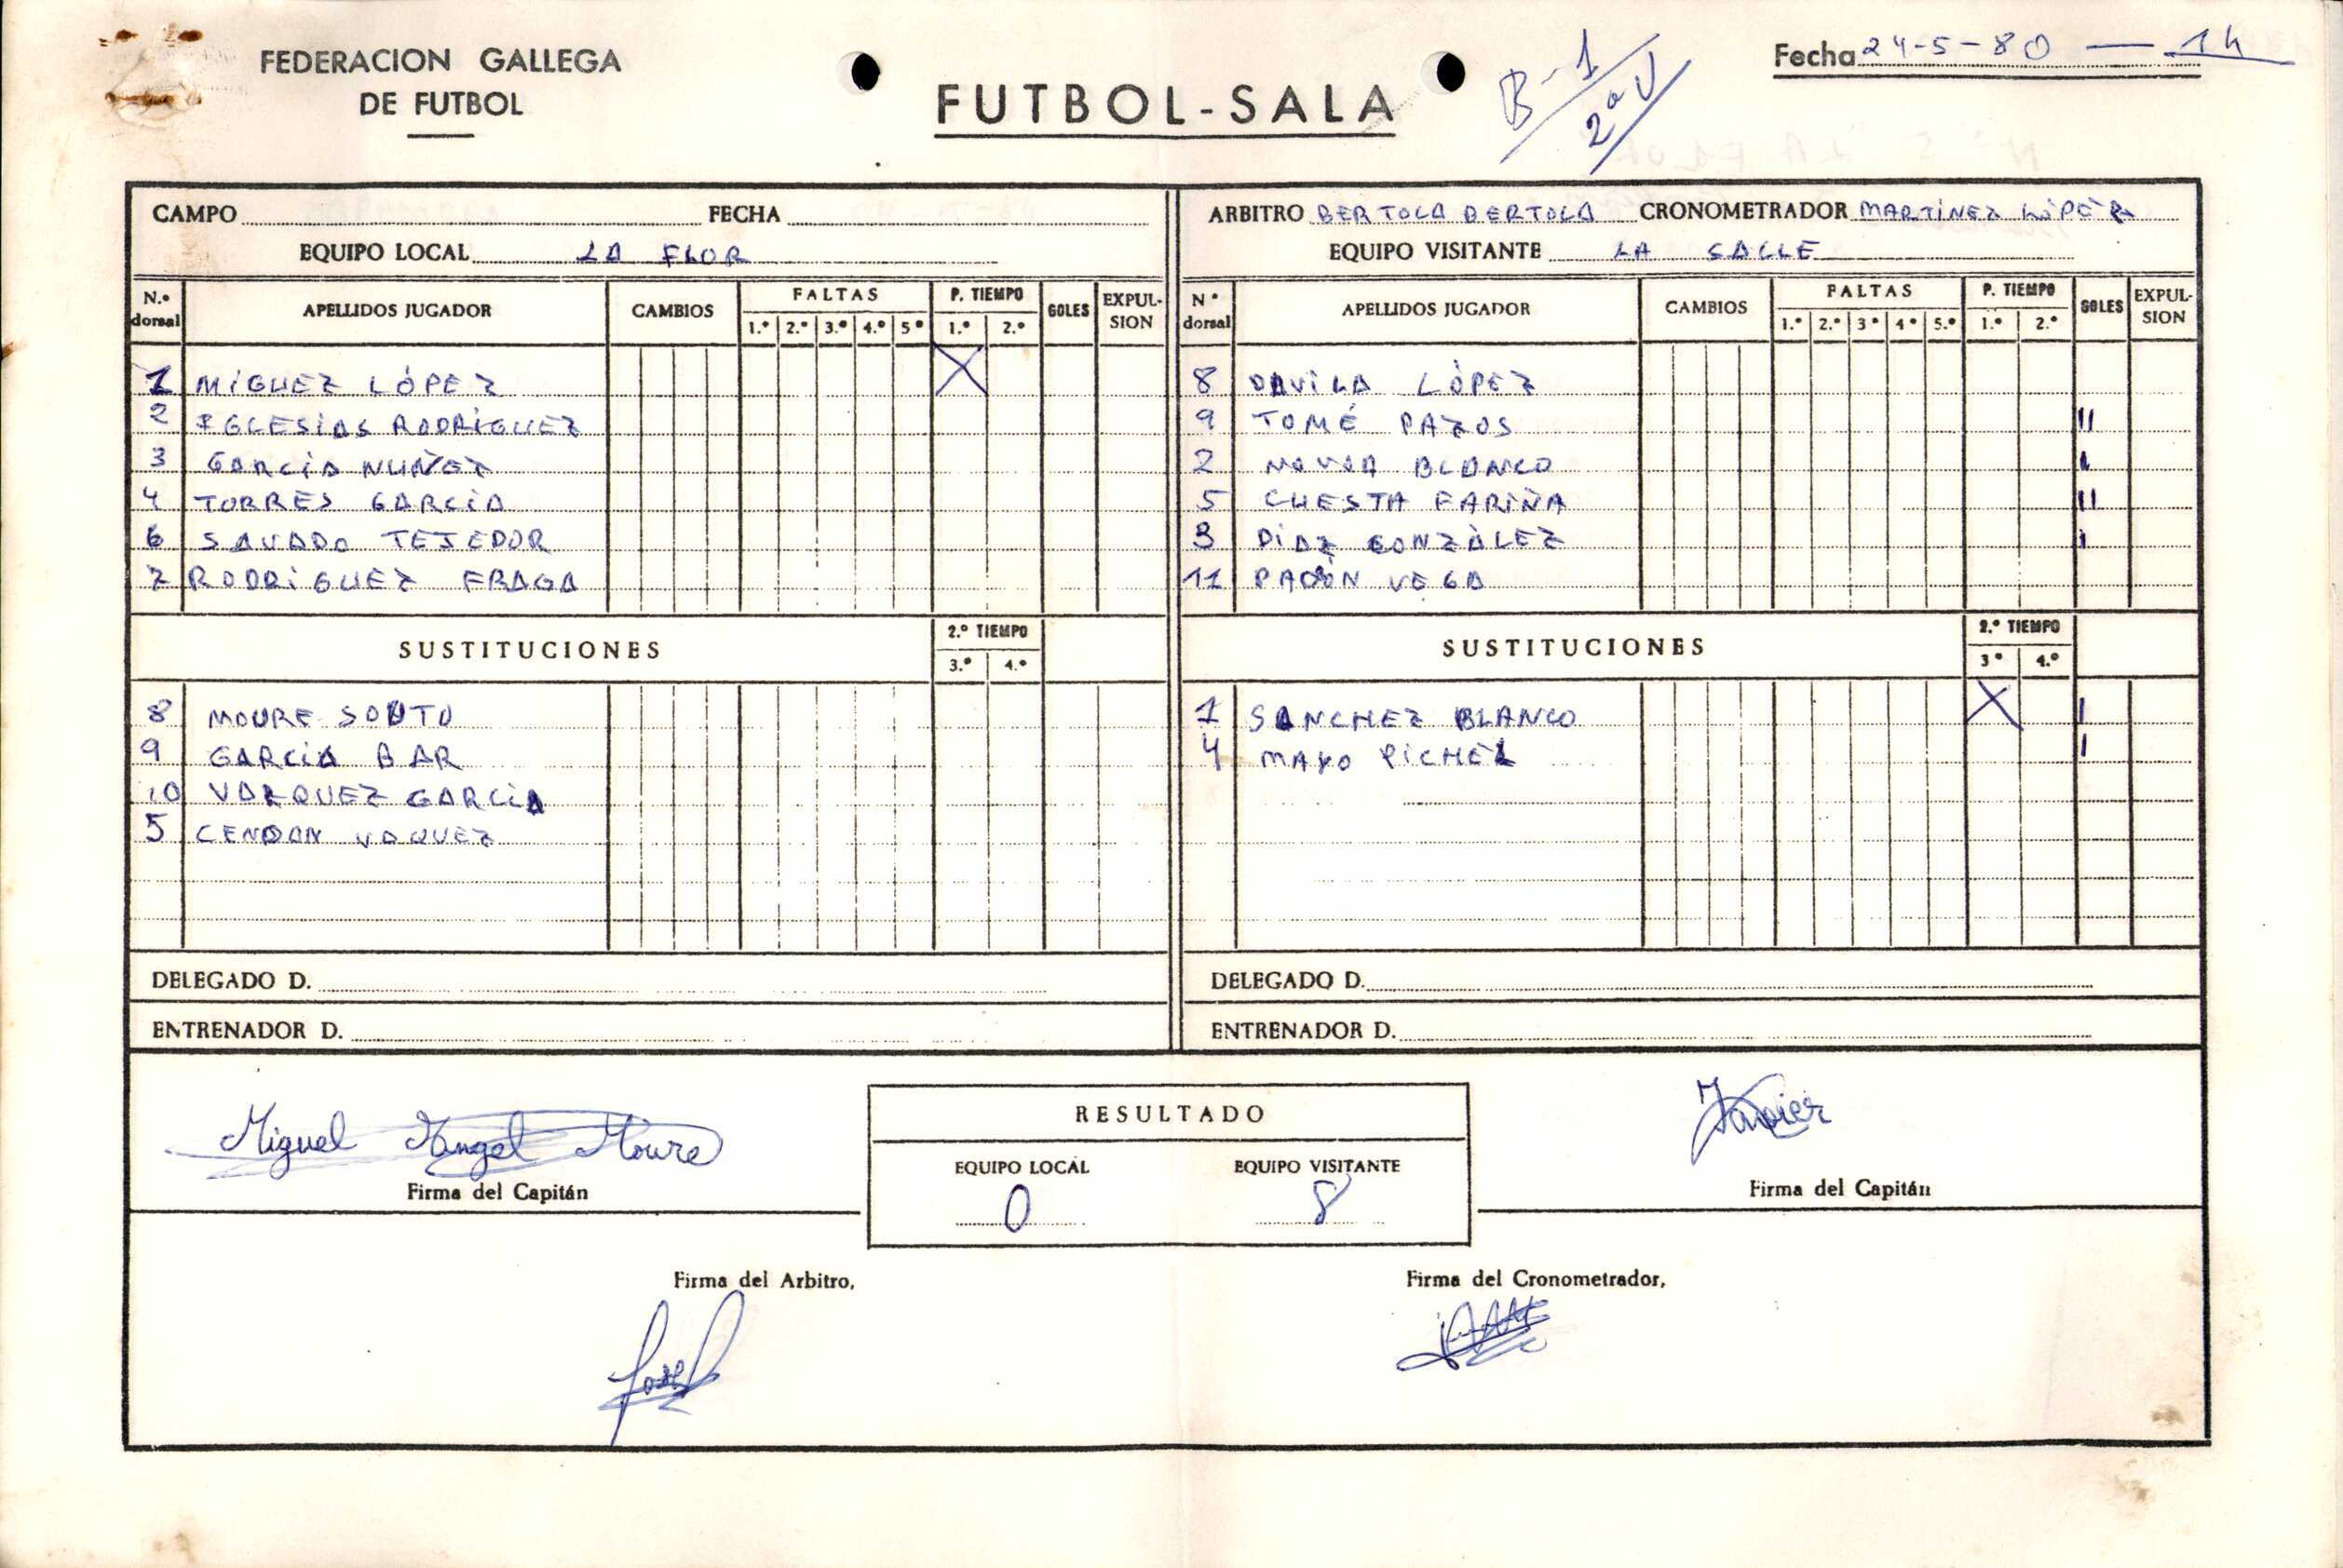 FEDERACION GALLEGA
DE FUTBOL
FUTBOL-SALA
B-1
2ª V
Fecha 24-5-80 — 14
CAMPO FECHA
EQUIPO LOCAL LA FLOR
N.º dorsal APELLIDOS JUGADOR CAMBIOS FALTAS P. TIEMPO GOLES EXPULSION
1.º 2.º 3.º 4.º 5º 1.º 2.º
1 MIGUEZ LÓPEZ X
2 IGLESIAS RODRÍGUEZ
3 GARCÍA NUÑEZ
4 TORRES GARCÍA
6 SAVADO TEJEDOR
7 RODRÍGUEZ FRAGA
SUSTITUCIONES 2.º TIEMPO
3.º 4.º
8 MOURE SOUTO
9 GARCIA BAR
10 VAZQUEZ GARCIA
5 CENDAN VAQUEZ
DELEGADO D.
ENTRENADOR D.
ARBITRO BERTOLA BERTOLA CRONOMETRADOR MARTÍNEZ LÓPEZ
EQUIPO VISITANTE LA SALLE
Nº dorsal APELLIDOS JUGADOR CAMBIOS FALTAS P. TIEMPO GOLES EXPULSION
1.º 2.º 3º 4º 5.º 1.º 2.º
8 DAVILA LÓPEZ
9 TOMÉ PAZOS II
2 NOVOA BLANCO I
5 CUESTA FARIÑA II
3 DÍAZ GONZÁLEZ I
11 PADÍN VEGA
SUSTITUCIONES 2.º TIEMPO
3º 4.º
1 SANCHEZ BLANCO X I
4 MAYO PICHEL I
DELEGADO D.
ENTRENADOR D.
Miguel Angel Moure
Firma del Capitán
RESULTADO
EQUIPO LOCAL EQUIPO VISITANTE
0 8
Javier
Firma del Capitán
Firma del Arbitro,
José
Firma del Cronometrador,